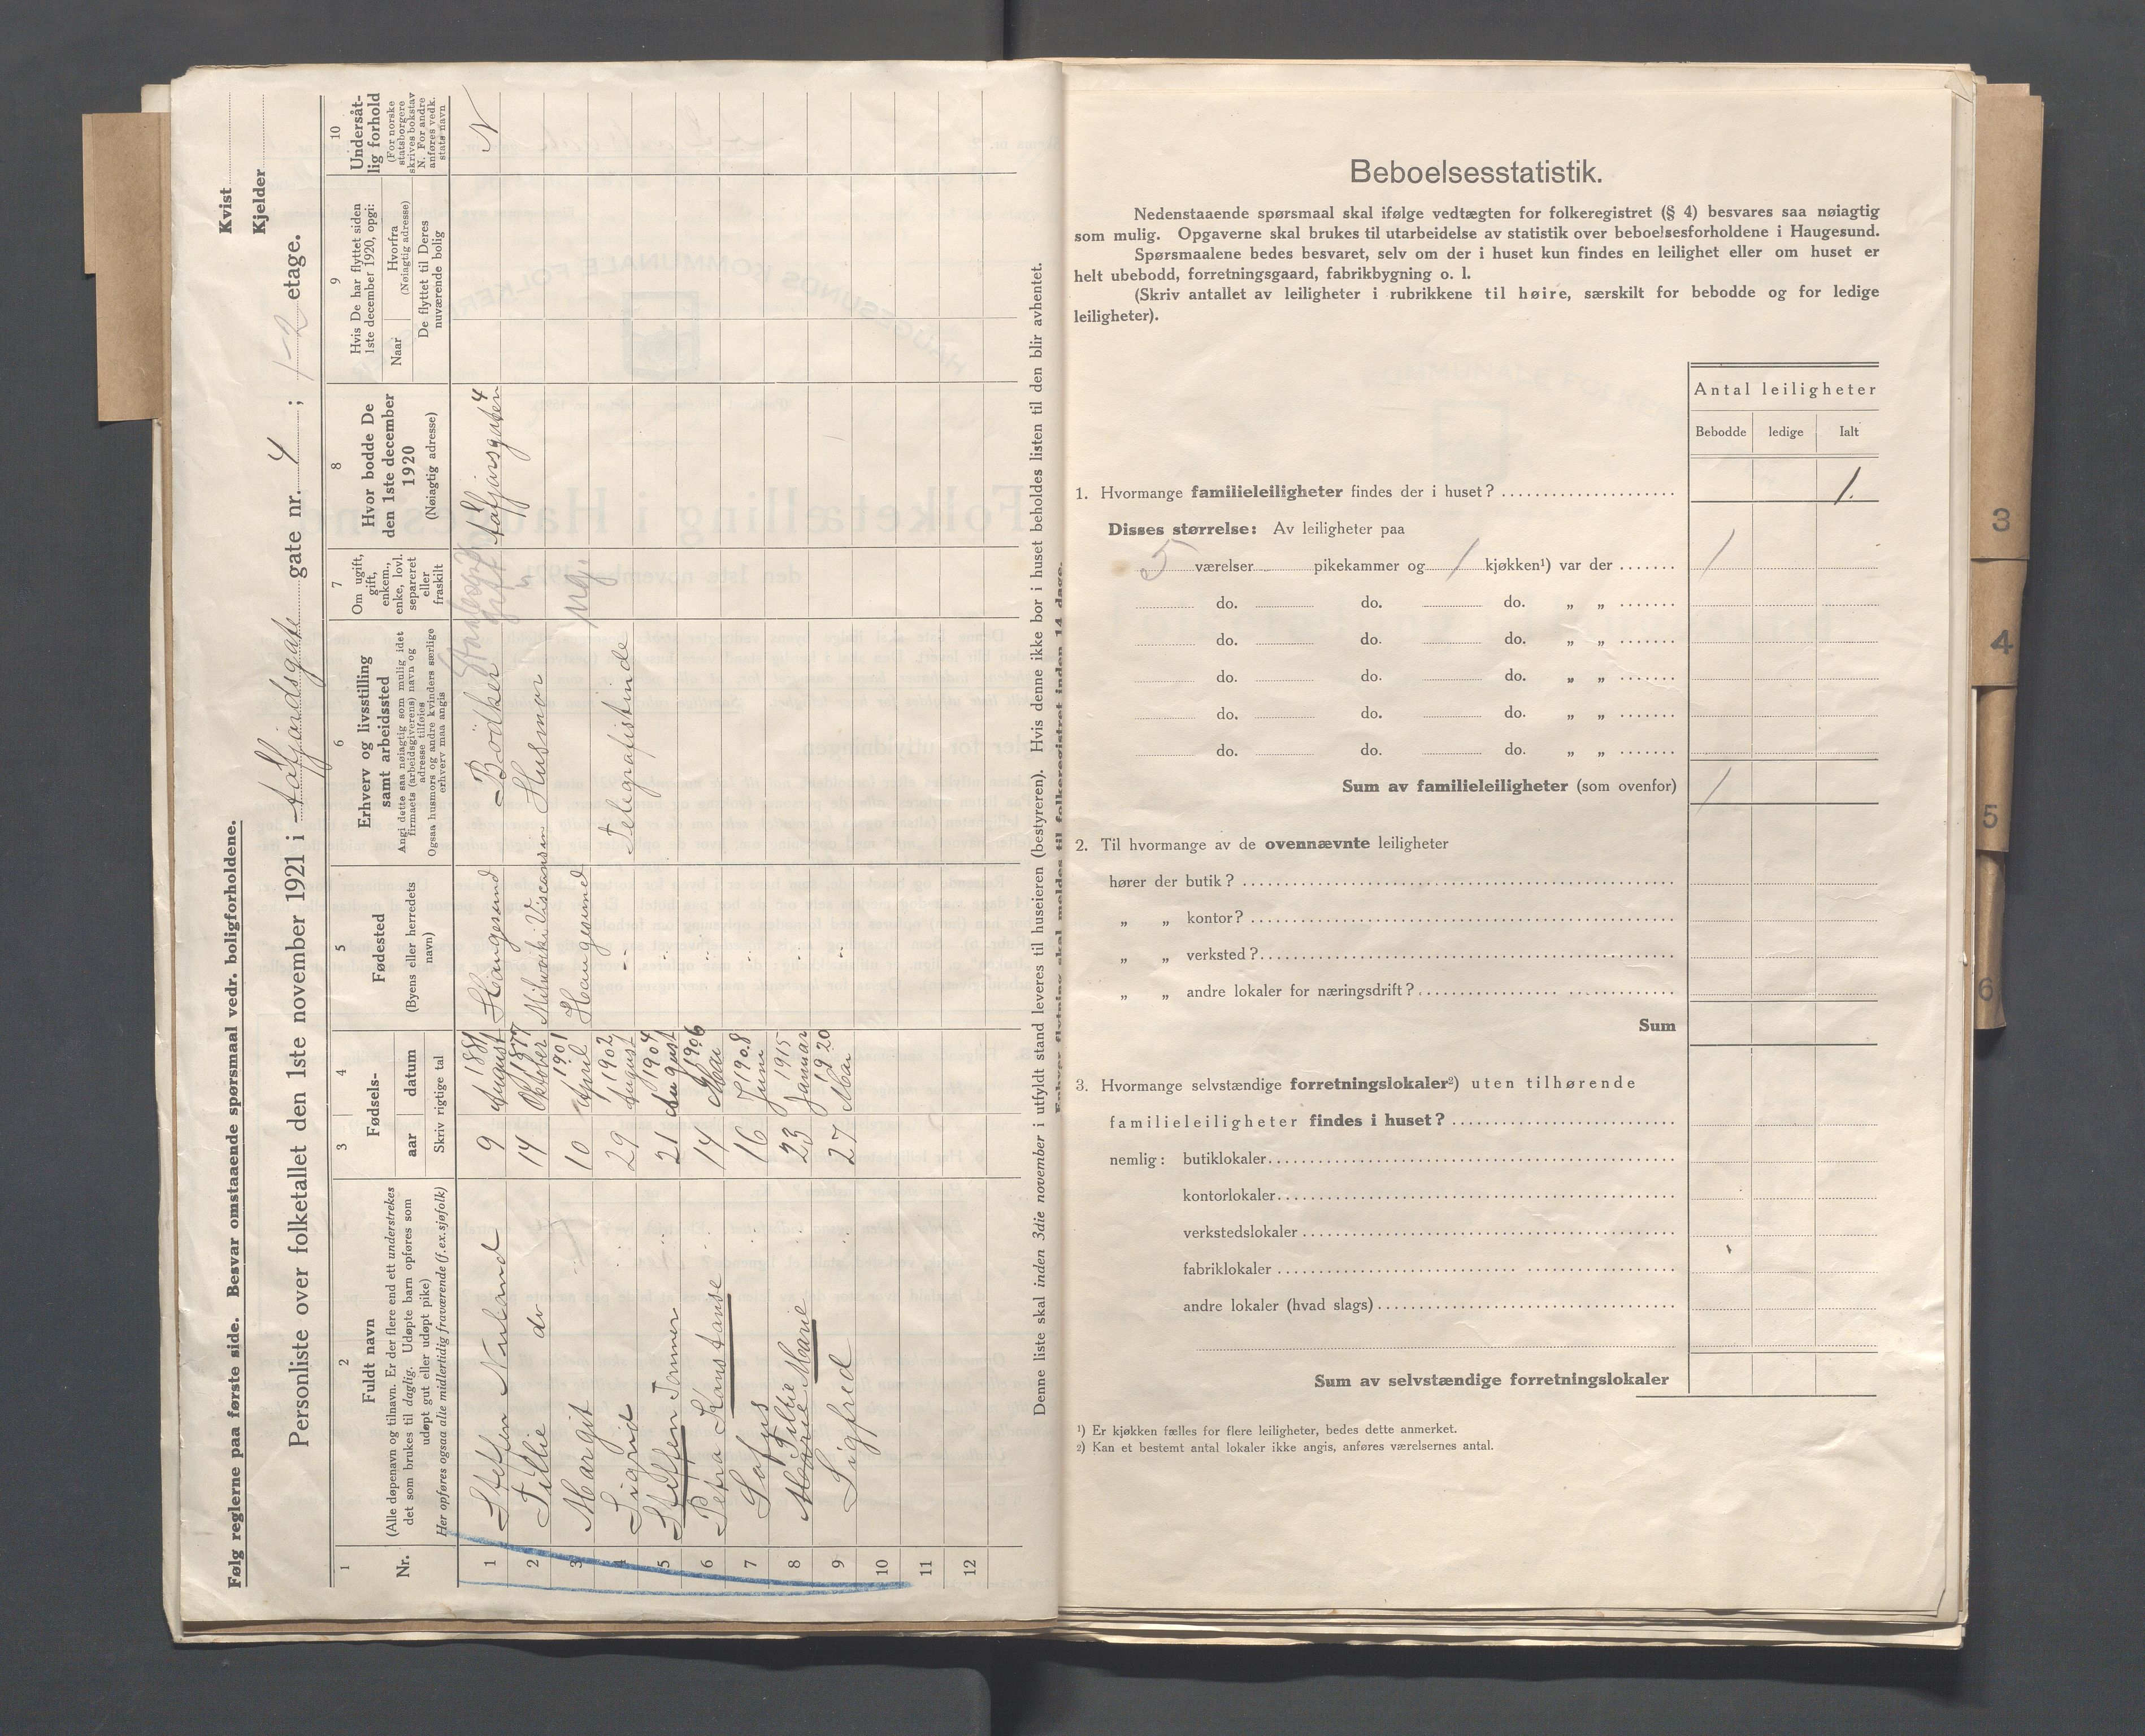 Følg reglerne paa første side. Besvar omstaaende spørsmaal vedr. boligforholdene.
Kvist
Kjelder
Personliste over folketallet den 1ste november 1921 i gate nr. 4 ; 1-2 etage.
1
Nr.
2
Fuldt navn
(Alle døpenavn og tilnavn. Er der flere end ett understrekes
det som brukes til daglig. Udøpte barn opføres som
udøpt gut eller udøpt pike)
Her opføres ogsaa alle midlertidig fraværende (f.ex. sjøfolk)
3 4
Fødsels-
aar datum
Skriv rigtige tal
5
Fødested
(Byens eller herredets
navn)
6
Erhverv og livsstilling
samt arbeidssted
Angi dette saa nøiagtig som mulig idet
firmaets (arbeidsgiverens) navn og
adresse tilføies
Ogsaa husmors og andre kvinders særlige
erhverv maa angis
7
Om ugift,
gift,
enkem.,
enke, lovl.
separeret
eller
fraskilt
8
Hvor bodde De
den 1ste december
1920
(Nøiagtig adresse)
9
Hvis De har flyttet siden
1ste december 1920, opgi:
Naar
Hvorfra
(Nøiagtig adresse)
De flyttet til Deres
nuværende bolig
10
Undersåt-
lig forhold
(For norske
statsborgere
skrives bokstav
N. For andre
anføres vedk.
stats navn
1 Steffen Nuland 9 August 1881 Haugesund Bødker gift 4 N
2 Tillie do 14 Oktober 1877 Husmor
3 Margit 10 April 1901 Haugesund ug.
4 Sigrid 29 August 1902 Telegrafistinde
5 Steffen 21 August 1904
6 Petra Konstanse 14 Mai 1906
7 Sofus 16 Juni 1908
8 Tillie Marie 23 Januar 1915
9 Sigfred 27 Mai 1920
10
11
12
Denne liste skal inden 3die november i utfyldt stand leveres til huseieren (bestyreren). Hvis denne ikke bor i huset beholdes listen til den blir avhentet.
Enhver flytning skal meldes til folkeregistret inden 14 dage.
Beboelsesstatistik.
Nedenstaaende spørsmaal skal ifølge vedtægten for folkeregistret (§ 4) besvares saa nøiagtig
som mulig. Opgaverne skal brukes til utarbeidelse av statistik over beboelsesforholdene i Haugesund.
Spørsmaalene bedes besvaret, selv om der i huset kun findes en leilighet eller om huset er
helt ubebodd, forretningsgaard, fabrikbygning o. l.
(Skriv antallet av leiligheter i rubrikkene til høire, særskilt for bebodde og for ledige
leiligheter).
Antal leiligheter
Bebodde ledige Ialt
1. Hvormange familieleiligheter findes der i huset? 1.
Disses størrelse: Av leiligheter paa
5 værelser pikekammer og 1 kjøkken¹) var der 1
do. do. do. „ „
do. do. do. „ „
do. do. do. „ „
do. do. do. „ „
do. do. do. „ „
Sum av familieleiligheter (som ovenfor) 1
2. Til hvormange av de ovennævnte leiligheter
hører der butik?
„ „ kontor?
„ „ verksted?
„ „ andre lokaler for næringsdrift?
Sum
3. Hvormange selvstændige forretningslokaler²) uten tilhørende
familieleiligheter findes i huset?
nemlig: butiklokaler
kontorlokaler
verkstedslokaler
fabriklokaler
andre lokaler (hvad slags)
Sum av selvstændige forretningslokaler
¹) Er kjøkken fælles for flere leiligheter, bedes dette anmerket.
²) Kan et bestemt antal lokaler ikke angis, anføres værelsernes antal.
3
4
5
6